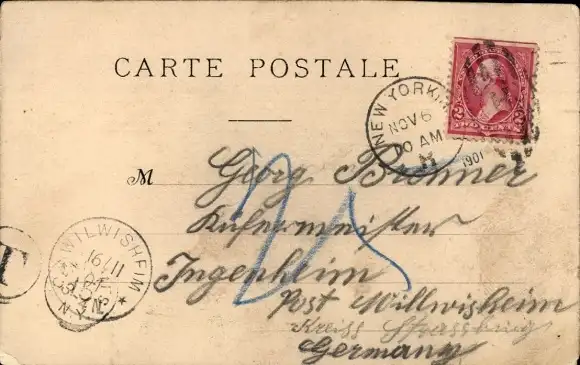 CARTE POSTALE
NEW YORK, N.
NOV 6
10 AM
1901
2 2
M Georg Bronner
Küfermeister
Ingenheim
Post Willwisheim
Kreiss Strassburg
Germany
WILWISHEIM
16/11
T